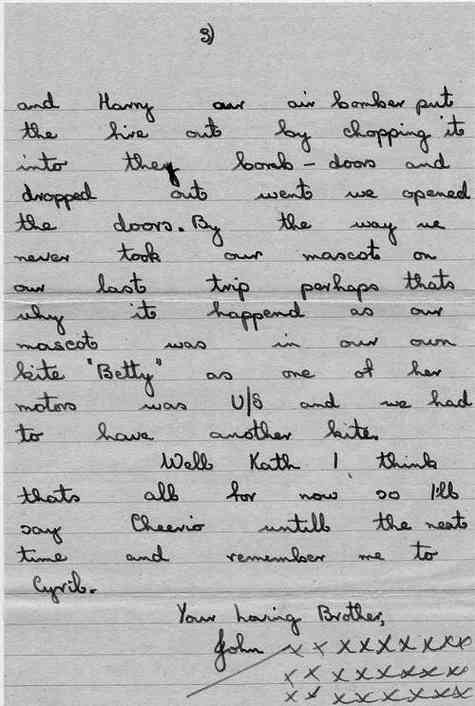 3)
and Harry our air bomber put
the fire out by chopping it
into they bomb - doors and
dropped out went we opened
the doors. By the way we
never took our mascot on
our last trip perhaps thats
why it happend as our
mascot was in our own
kite "Betty" as one of her
motors was U/S and we had
to have another kite.
Well Kath I think
thats all for now so I'll
say Cheerio untill the next
time and remember me to
Cyril.
Your loving Brother,
John x x x x x x x x x
x x x x x x x x x
x x x x x x x x x